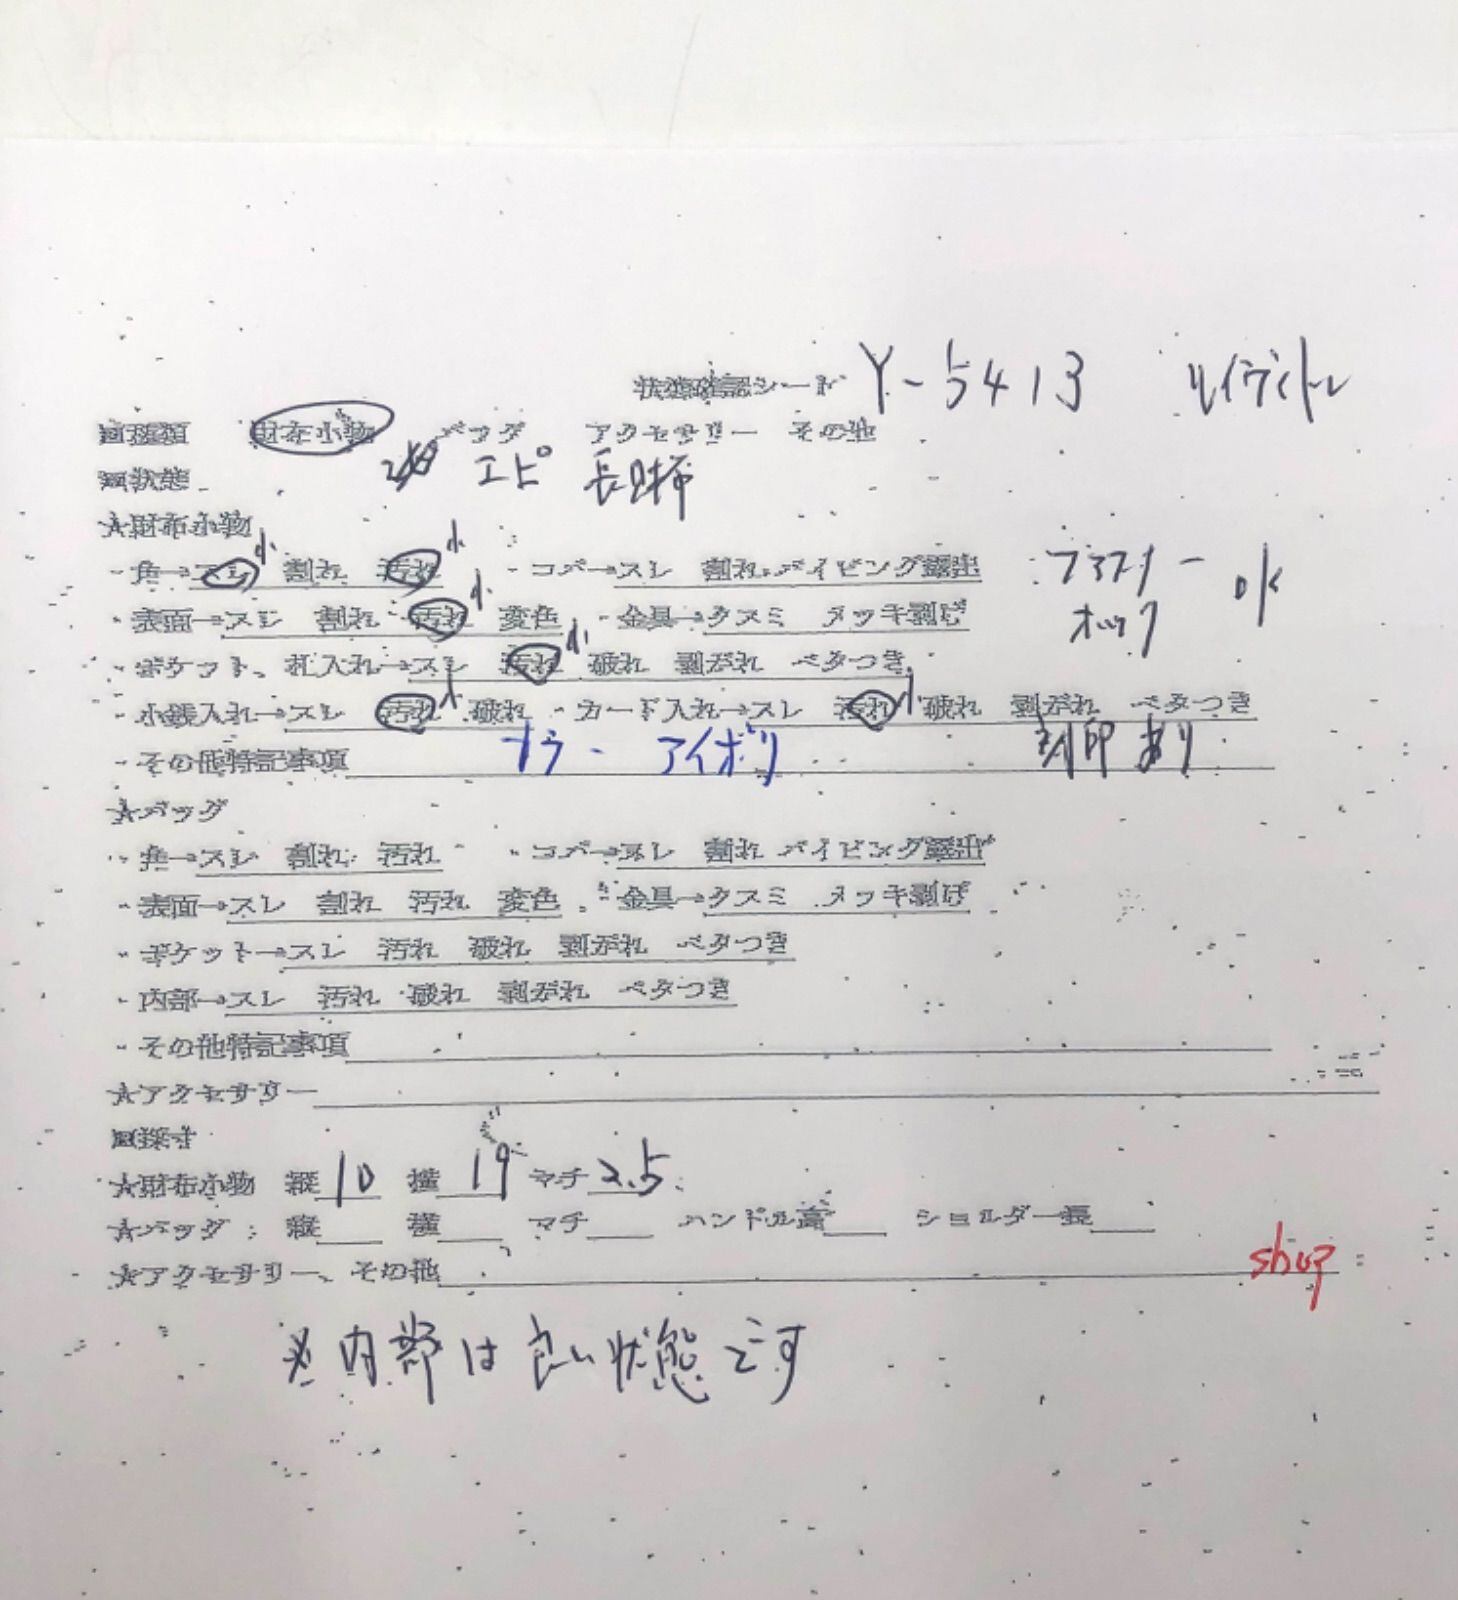 状態確認シート Y-5413 ルイヴィトン
■種類 財布小物 バッグ アクセサリー その他
■状態 エピ 長財布
★財布小物
・角→スレ 小 割れ 汚れ 小 ・コバ→スレ 割れ パイピング露出 ファスナー OK
・表面→スレ 割れ 汚れ 小 変色 ・金具→クスミ メッキ剥げ ホック
・ポケット、札入れ→スレ 汚れ 小 破れ 剥がれ ベタつき
・小銭入れ→スレ 汚れ 小 破れ ・カード入れ→スレ 汚れ 小 破れ 剥がれ ベタつき
・その他特記事項 アイボリ 刻印あり
★バッグ
・角→スレ 割れ 汚れ ・コバ→スレ 割れ パイピング露出
・表面→スレ 割れ 汚れ 変色 ・金具→クスミ メッキ剥げ
・ポケット→スレ 汚れ 破れ 剥がれ ベタつき
・内部→スレ 汚れ 破れ 剥がれ ベタつき
・その他特記事項
★アクセサリー
■採寸
★財布小物 縦10 横19 マチ2.5
★バッグ 縦 横 マチ ハンドル高 ショルダー長
★アクセサリー、その他 shop
※内部は良い状態です